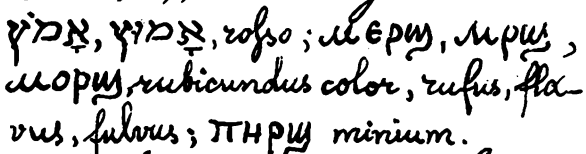 אָמֹץ, אָמוּץ, rosso; ⲙⲉⲣϣ, ⲙⲣϣ,
ⲙⲟⲣϣ, rubicundus color, rufus, fla-
vus, fulvus; ⲡⲏⲣϣ minium.